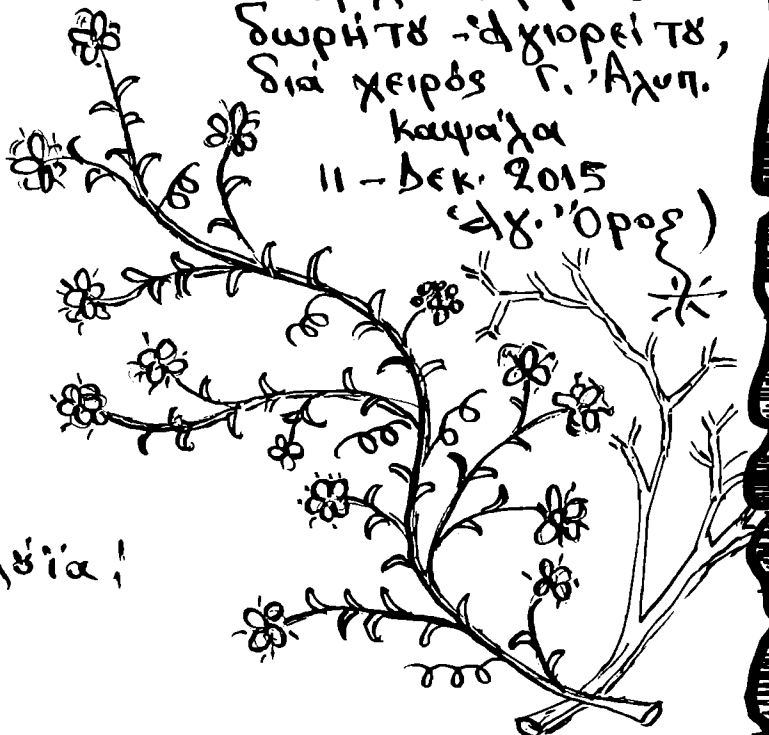 δωρήτȣ - Ἁγιορείτȣ,
διά χειρός Γ. Ἀλυπ.
Καψάλα
11 - Δεκ. 2015
Ἁγ. Ὄρος)